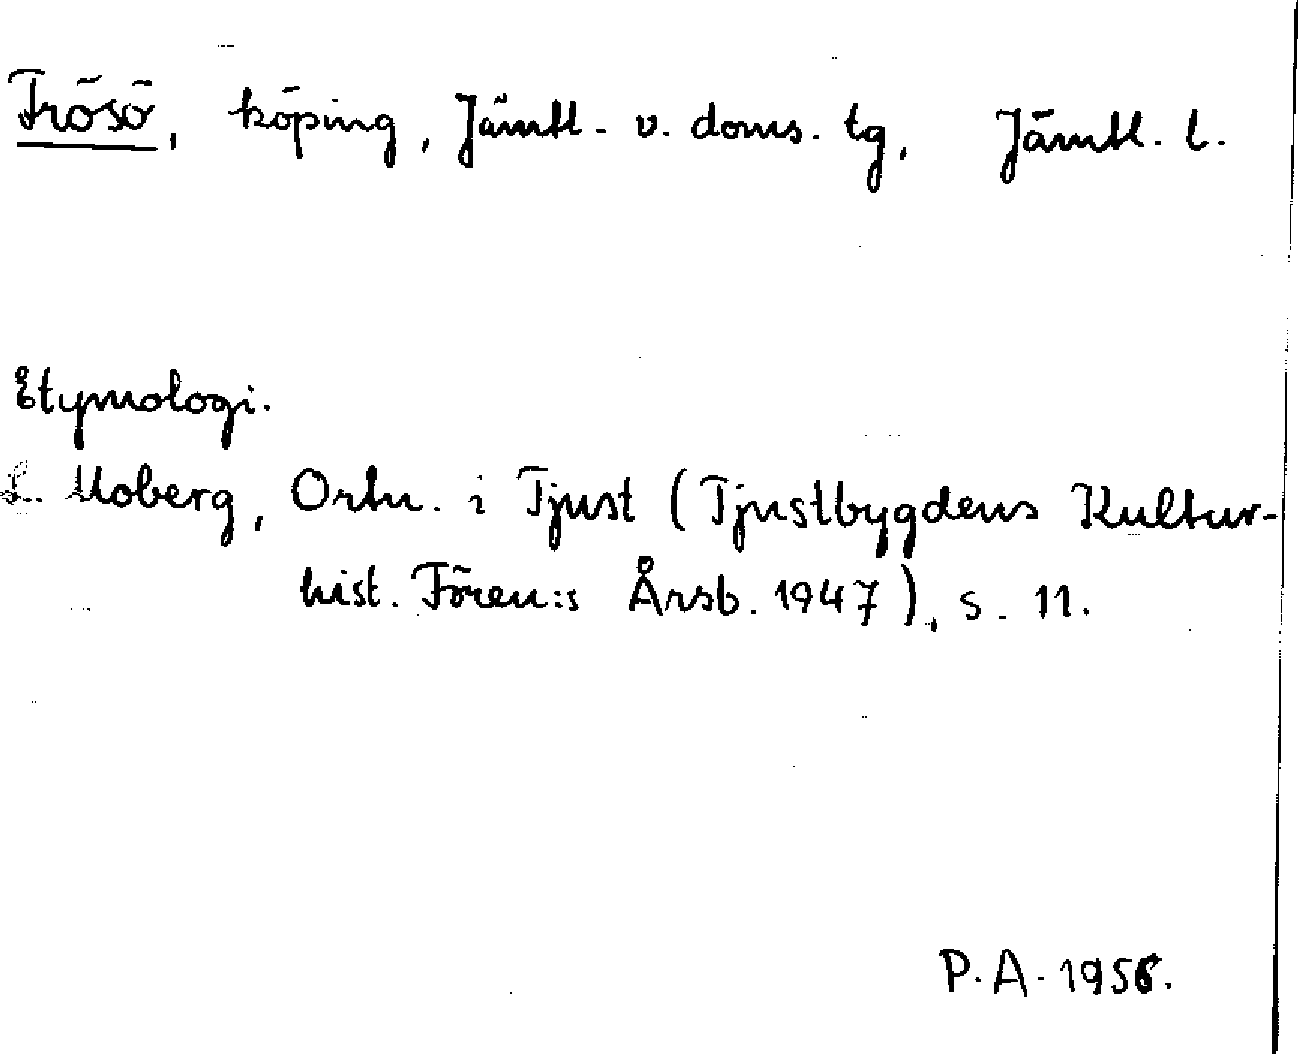 Frösö, köping, Jämtl. v. doms. tg, Jämtl. l.
Etymologi.
L. Moberg, Ortn. i Tjust (Tjustbygdens Kultur-
hist. Fören:s Årsb. 1947), s. 11.
P. A. 1956.